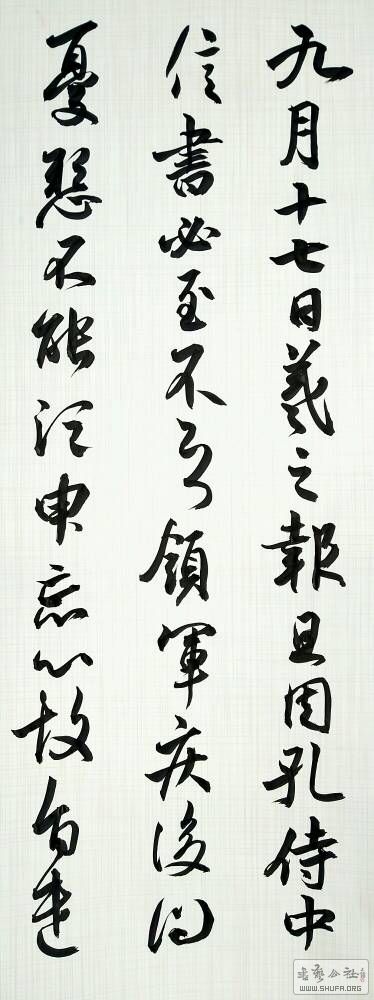 九月十七日羲之報且因孔侍中
信書必至不知領軍疾後問
憂懸不能須申忘心故旨遣
书艺公社
WWW.SHUFA.ORG